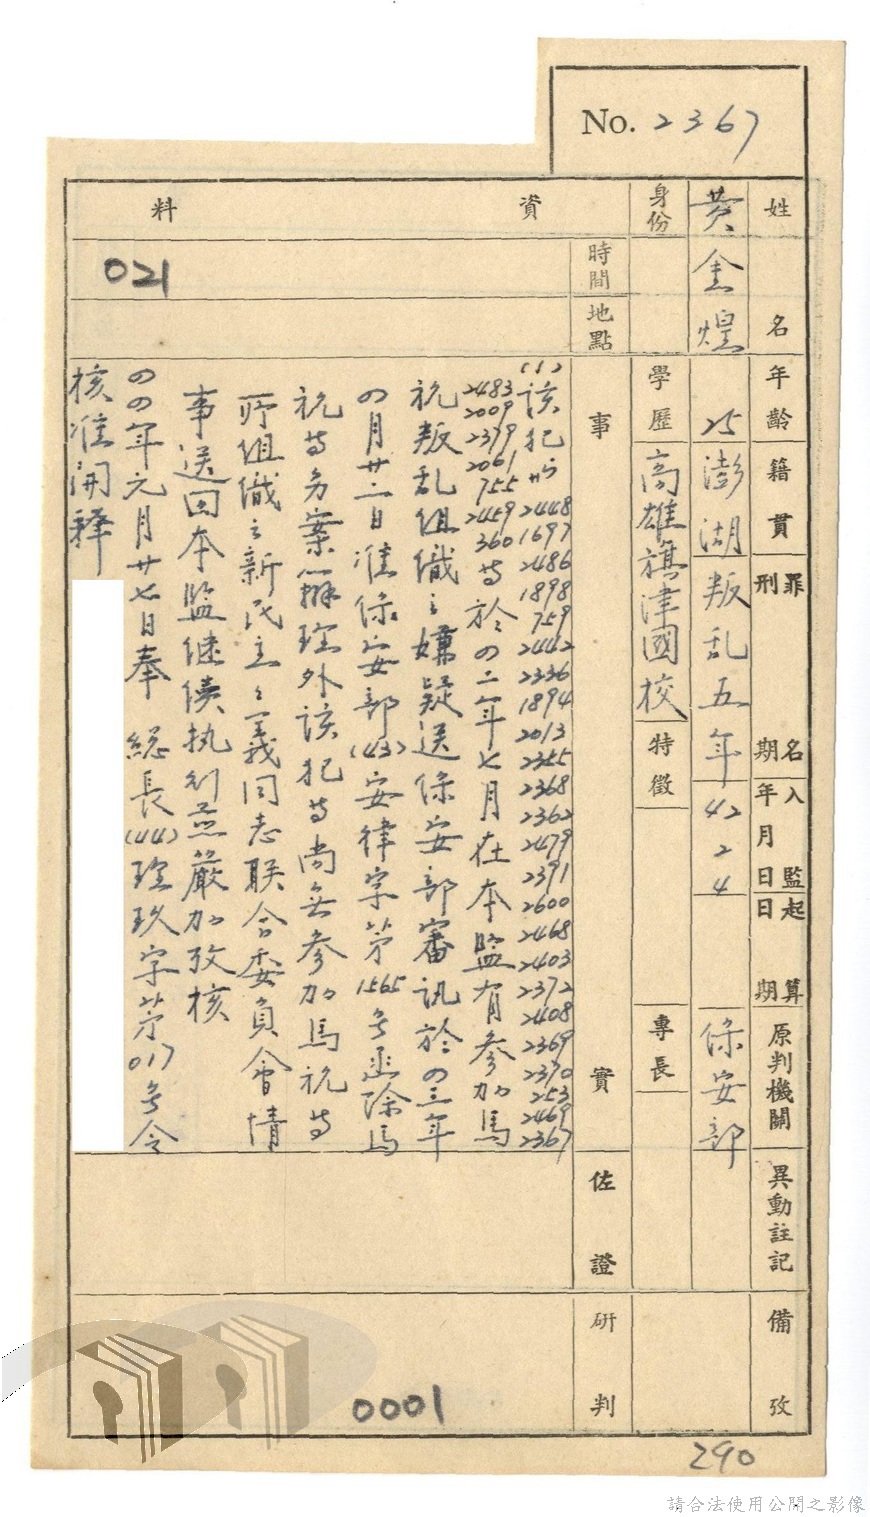 No. 2367
姓名 黃金煌
年齡 25
籍貫 澎湖
罪名刑期 叛乱五年
入監年月日 42 2 4
起算日期
原判機關 保安部
異動註記
備攷
身份
學歷 高雄旗津國校
特徵
專長
資料
時間
地點
事實
(1)該犯
2448 1697 2486 1898 759 2442 2336 1894 2013 2355 2368 2362 2479 2391 2600 2468 2403 2372 2408 2369 2370 253 2469 2367
2483 2009 2379 2061 755 2459 360 等於四二年七月在本監有參加馬
祝叛乱組織之嫌疑送保安部審訊於四三年
四月廿二日准保安部(43)安律字第1565号函除馬
祝等另案辦理外該犯等尚無參加馬祝等
所組織之新民主主義同志联合委員會情
事送回本監继续执行並嚴加攷核
四四年元月廿七日奉 総長(44)理玖字第017号令
核准開釋
佐證
研判
021
0001
290
請合法使用公開之影像